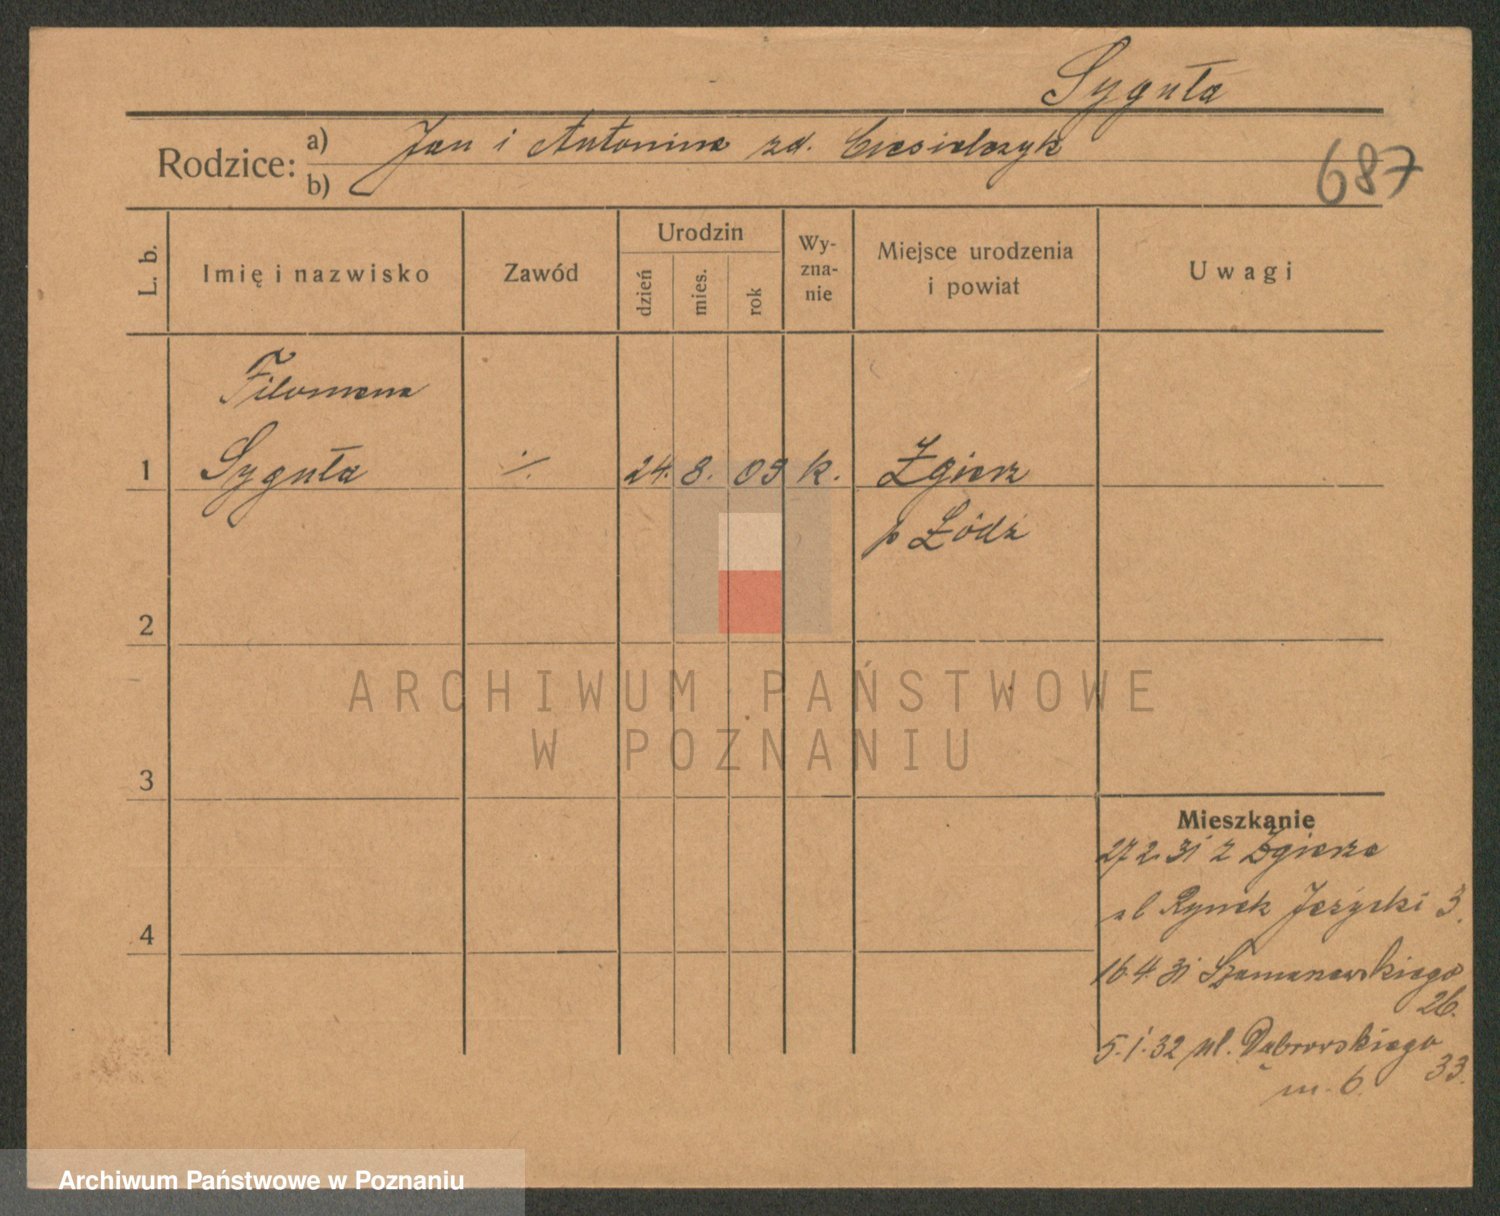 Syguła
Rodzice: a) Jan i Antonina zd. Ciesielczyk
b)
687
L. b.
Imię i nazwisko
Zawód
Urodzin
dzień
mies.
rok
Wy-
zna-
nie
Miejsce urodzenia
i powiat
Uwagi
Filomena
1 Syguła ./. 24. 8. 09 k. Zgierz
p Łódź
2
ARCHIWUM PAŃSTWOWE
W POZNANIU
3
Mieszkanie
27 2. 31 z Zgierza
ul Rynek Jeżycki 3.
4
16.4.31 Szamarzewskiego
26.
5.1.32 ul. Dąbrowskiego
33.
m. 6.
Archiwum Państwowe w Poznaniu